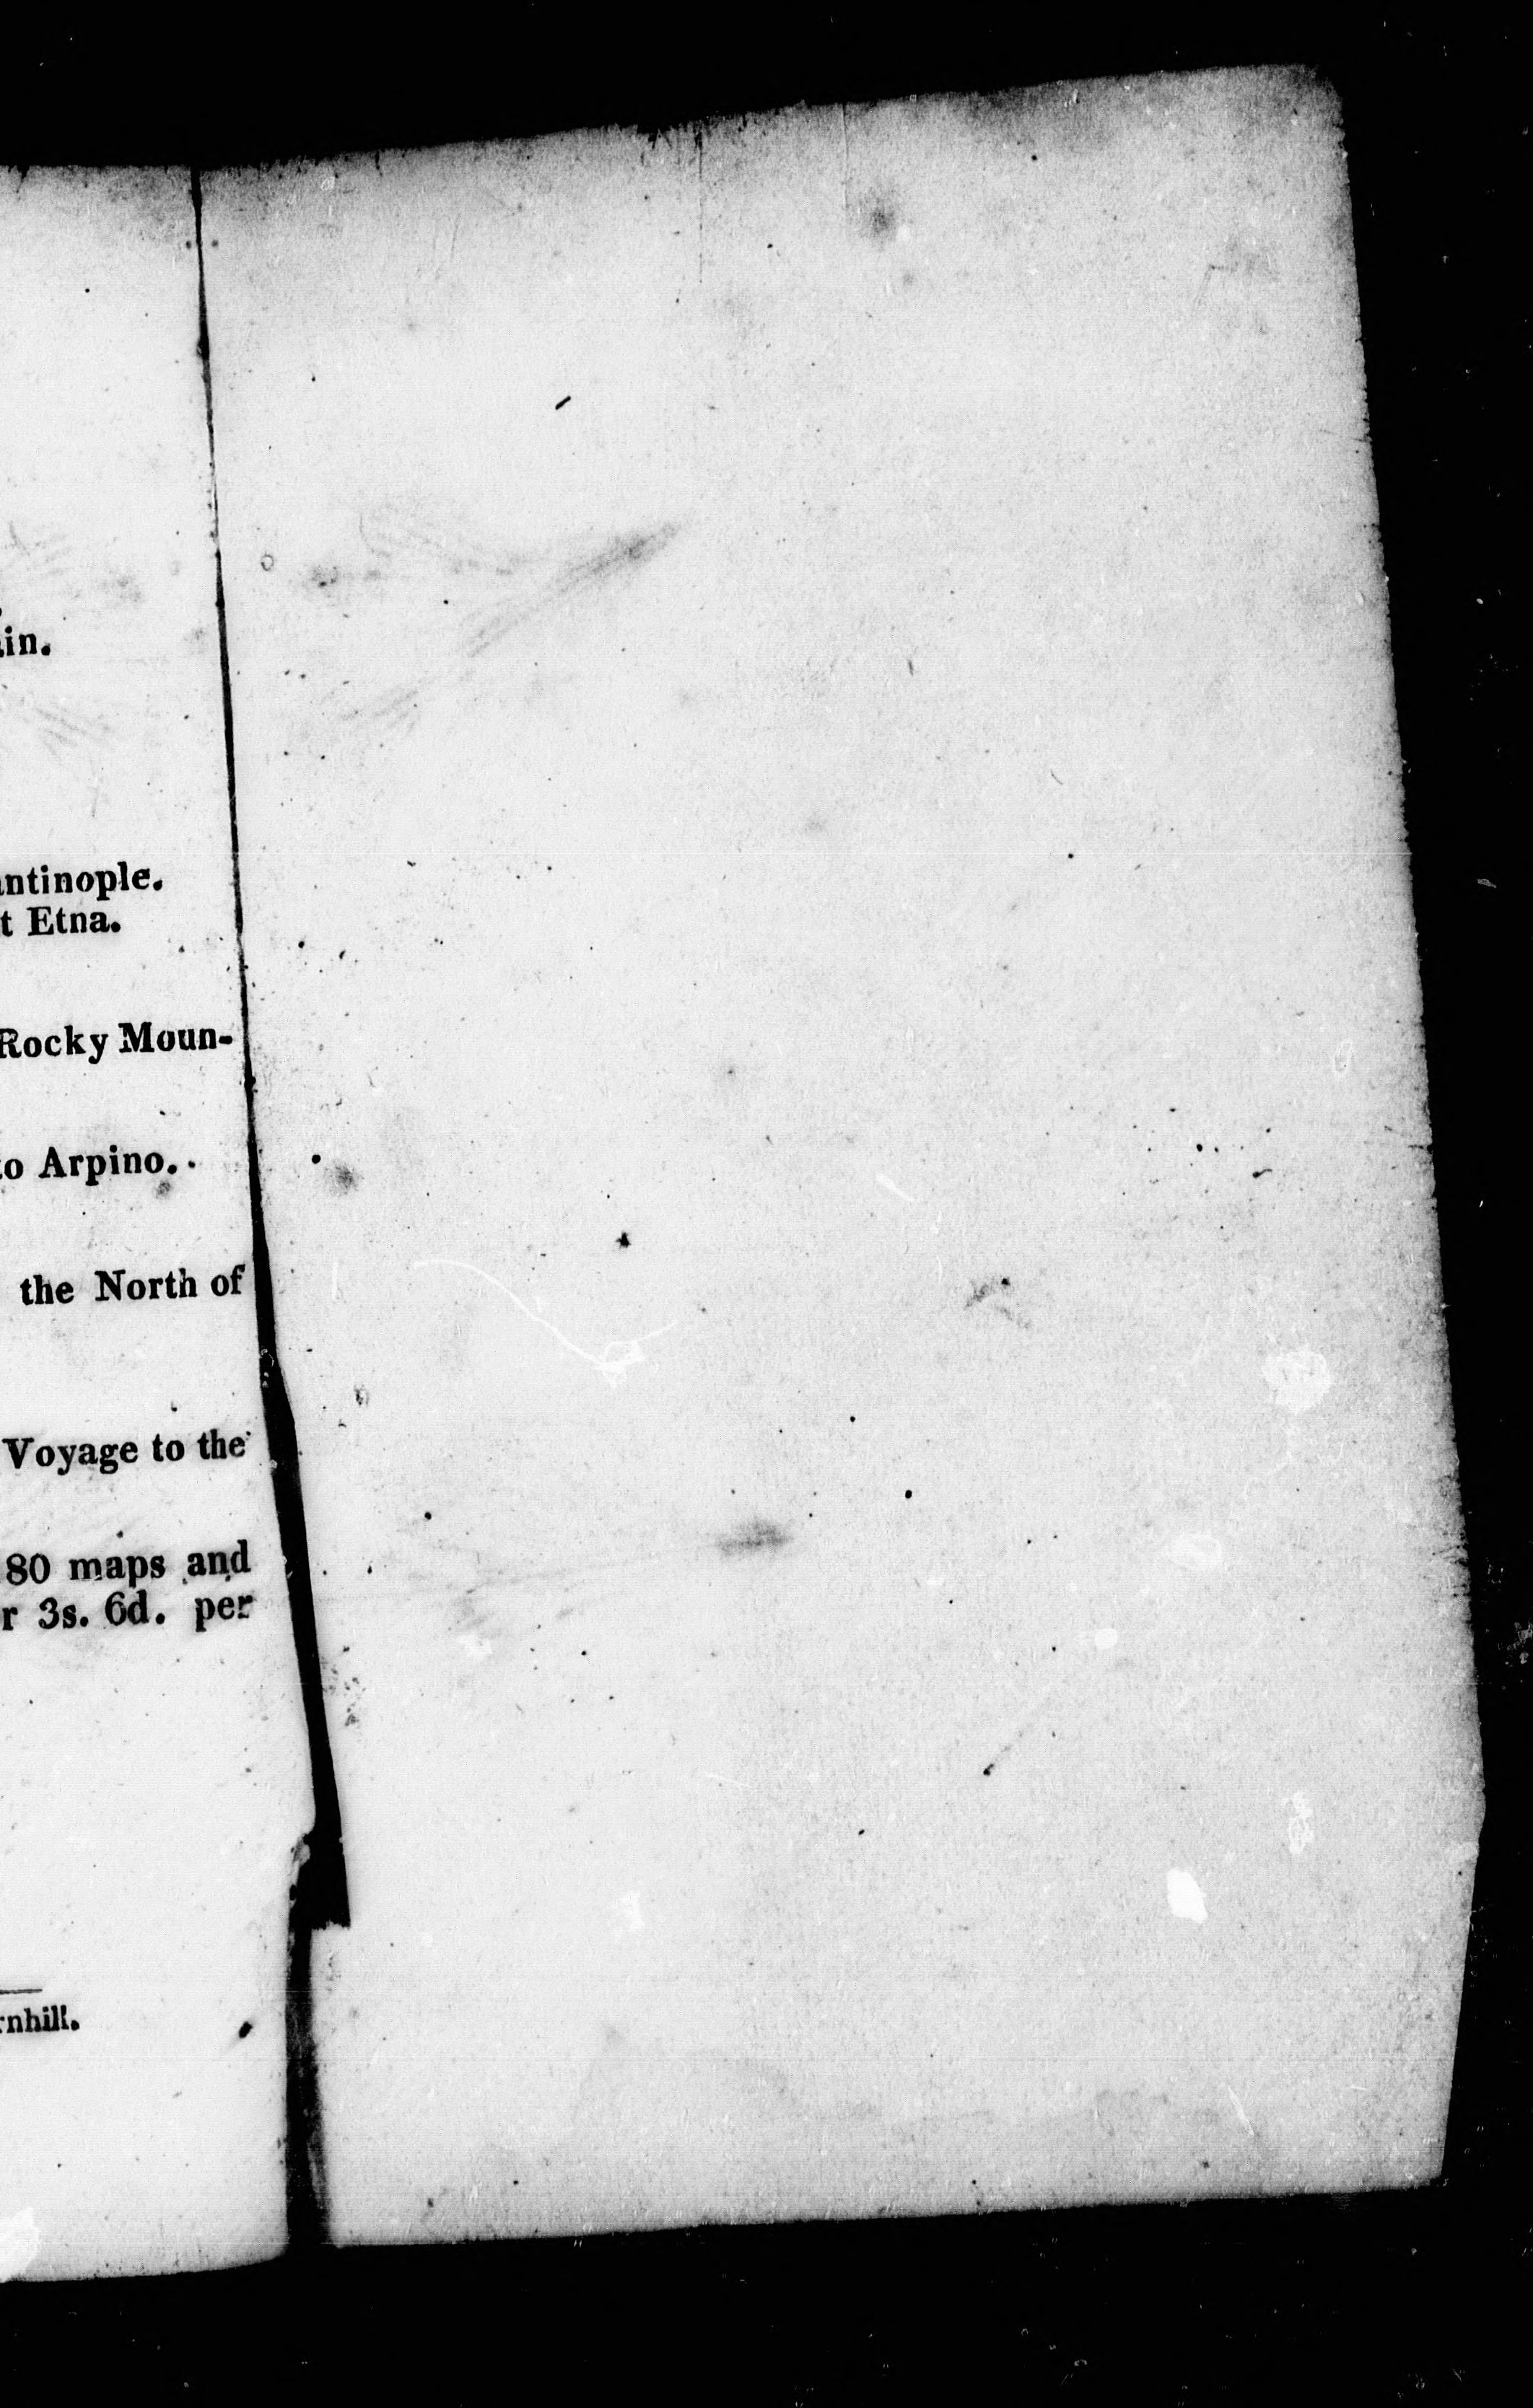 in.
antinople.
t Etna.
Rocky Moun-
to Arpino.
the North of
Voyage to the
80 maps and
r 3s. 6d. per
rnhill.